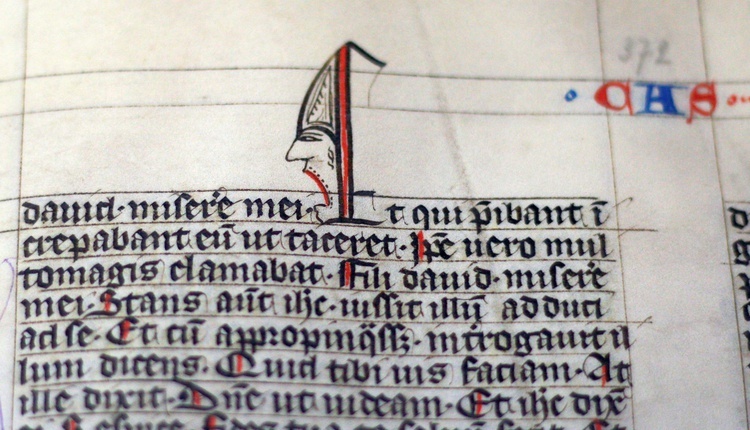 372
CAS
dauid · misere mei · Et qui p̄ibant ī
crepabant eū ut taceret · Ip̄e uero mul
tomagis clamabat · Fili dauid · misere
mei · Stans aūt ih̄c · iussit illū adduci
ad se · Et cū appropinq̄ssꝫ · intrrogauit il
lum dicens · Quid tibi uis faciam · At
ille dixit · Dn̄e ut uideam · Et ih̄c dix̄